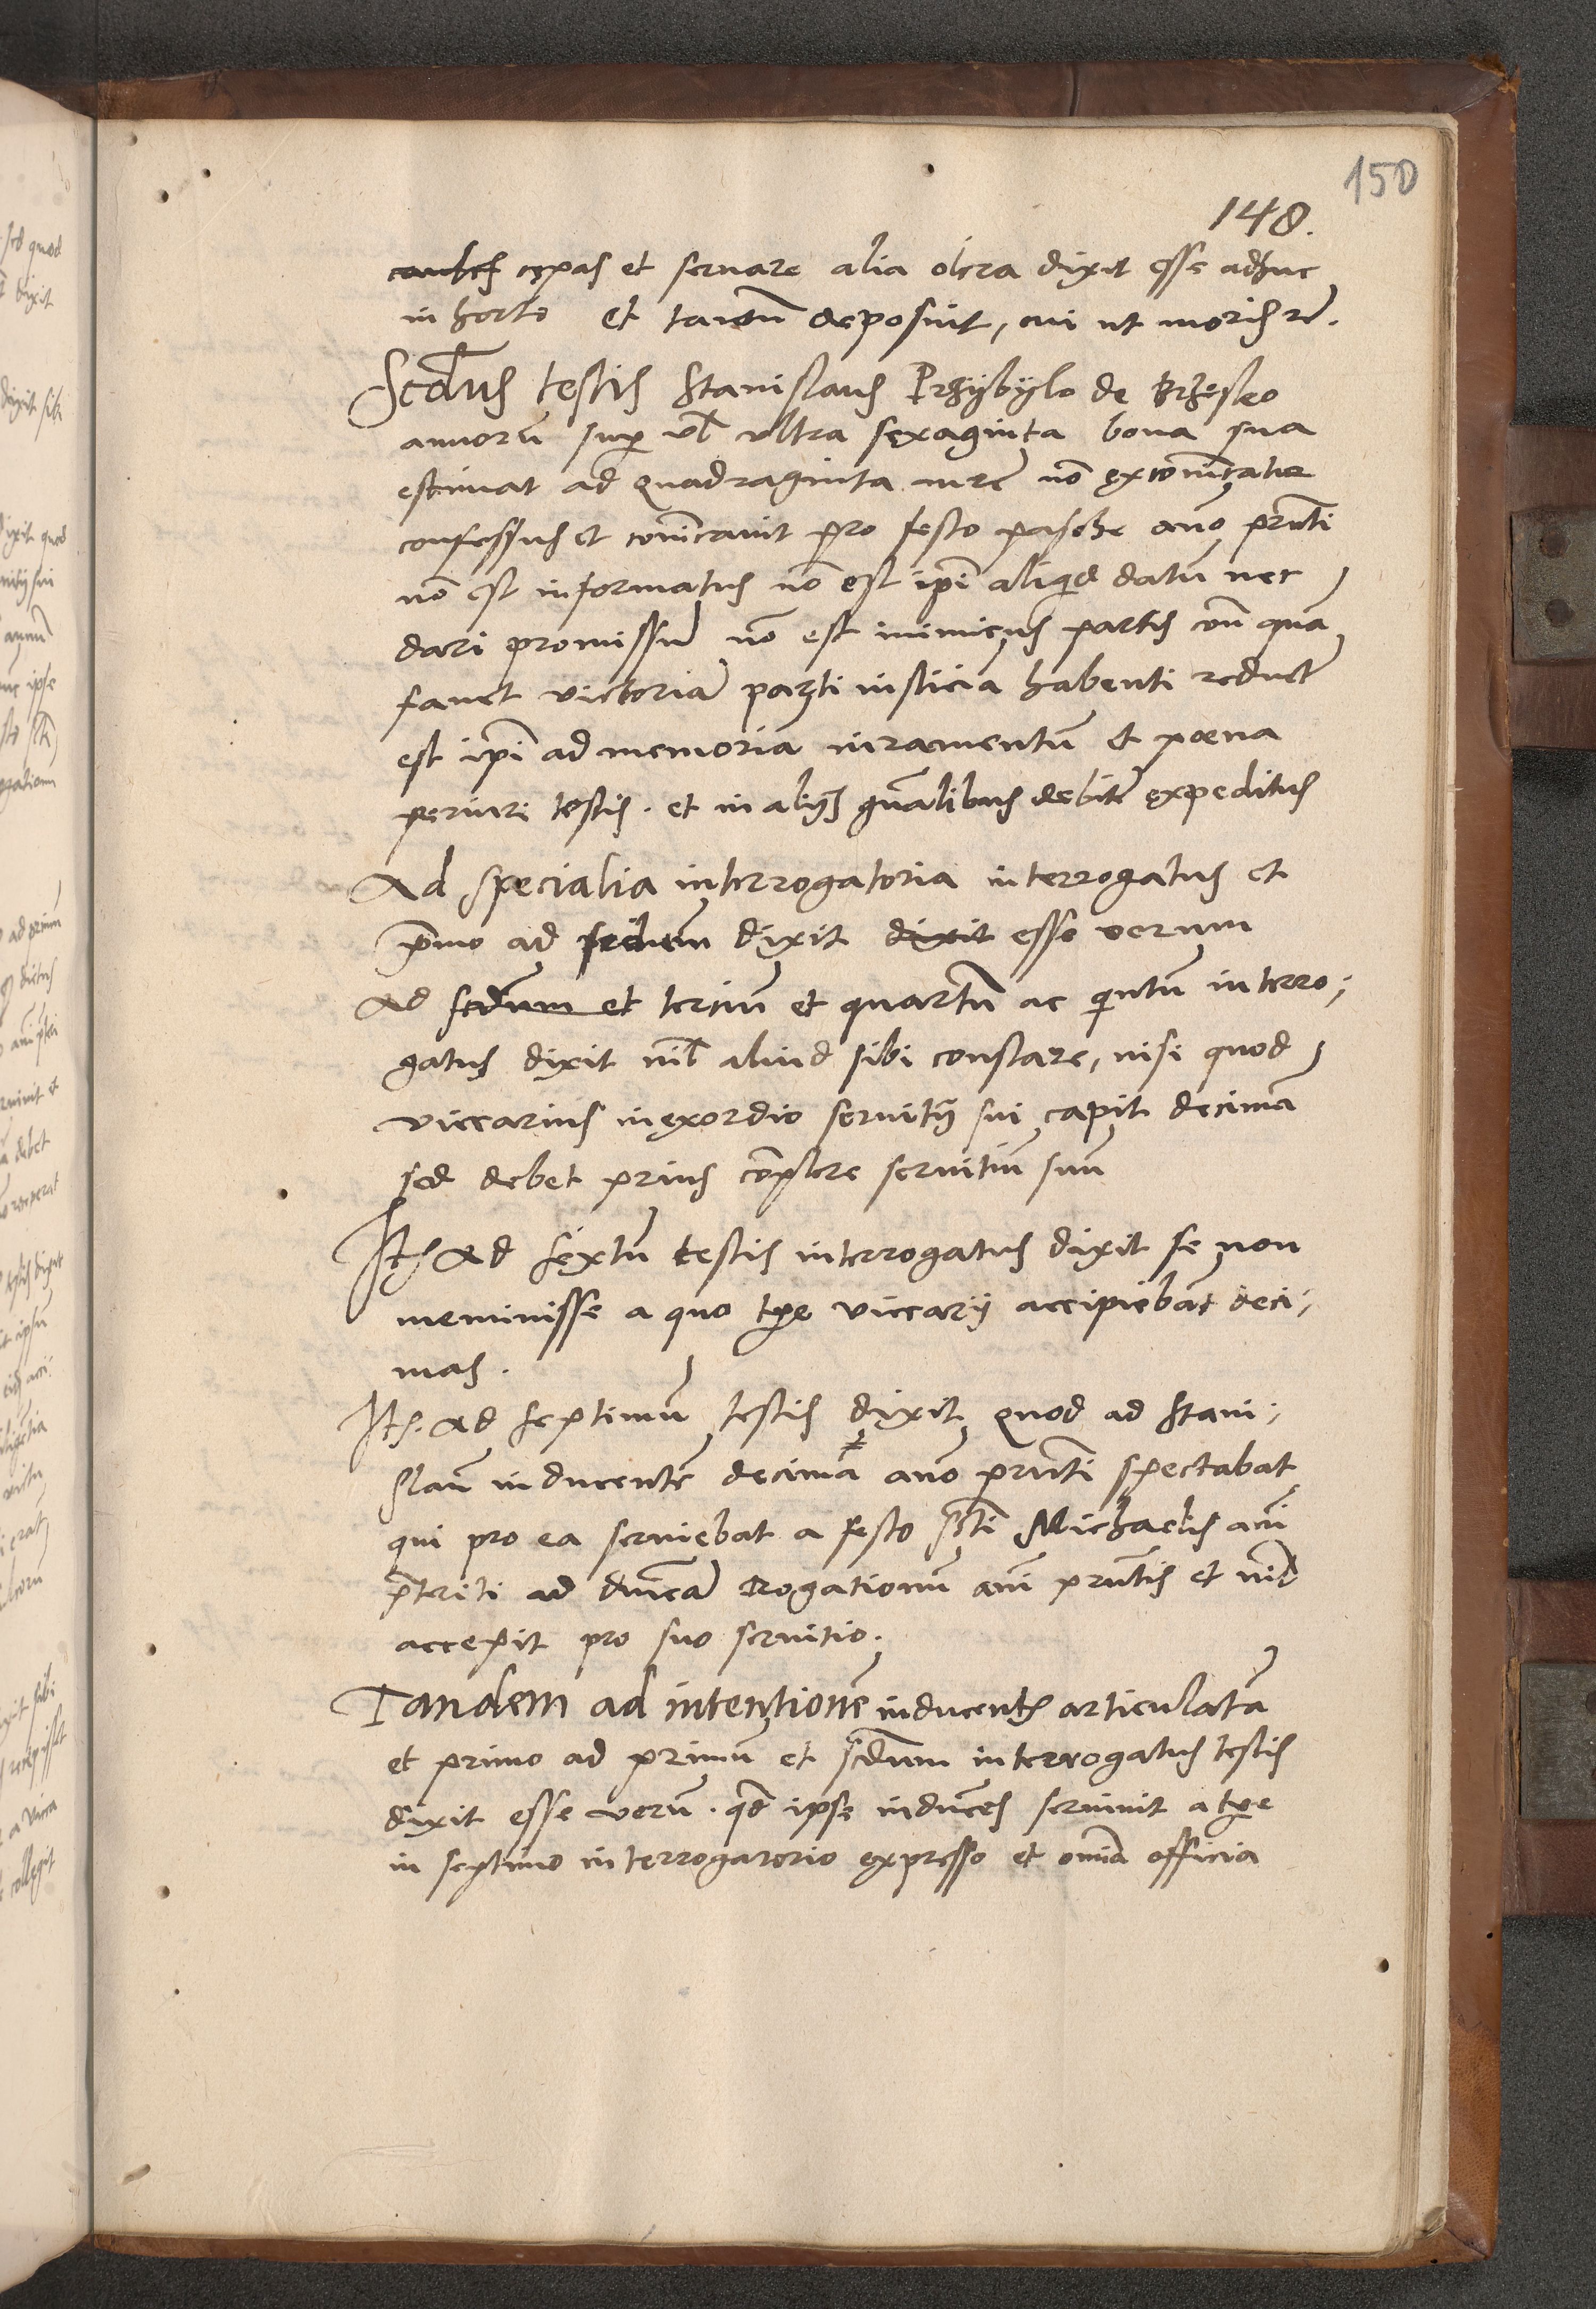 150
148.
cepas et seruare alia olera dixit esse adhuc
in horto et tantu deposuit, cui ut moris re.
Scdus testis Stanislaus Przybylo de Brzesko
annoru sup vl ultra sexaginta bona sua
estimat ad quadraginta mrc no excoicatus
confessus et coicauit pro festo pasche ano prnti
no est informatus no est ipi aliqd datu nec
dari promissu no est inimicus partis con qua
fauet victoria parti iusticia habenti reduct
est ipi ad memoria iuramentu et poena
periuri testis. et in alijs gnalibus debite expeditus
Ad specialia interrogatoria interrogatus et
pmo ad dixit dixit esse verum
Ad scdum et terciu et quartu ac quintu interro,
gatus dixit nil aliud sibi constare, nisi quod
viccarius in exordio seruitij sui capit decima
sed debet prius coplere seruitiu suu
Ite Ad sextu testis interrogatus dixit se non
meminisse a quo tpe viccarij accipiebat deci,
mas.
Ite. Ad septimu testis dixit quod ad Stani,
slau inducente decima ano prnti spectabat
qui pro ea seruiebat a festo scti Michaelis ani
pteriti ad dnica Rogationu ani prntis et nil
accepit pro suo seruitio.
Tandem ad intentione inducentis articulata
et primo ad primu et scdum interrogatus testis
dixit esse veru. qd ipse induces seruiuit a tpe
in septimo interrogatorio expresso et omia officia